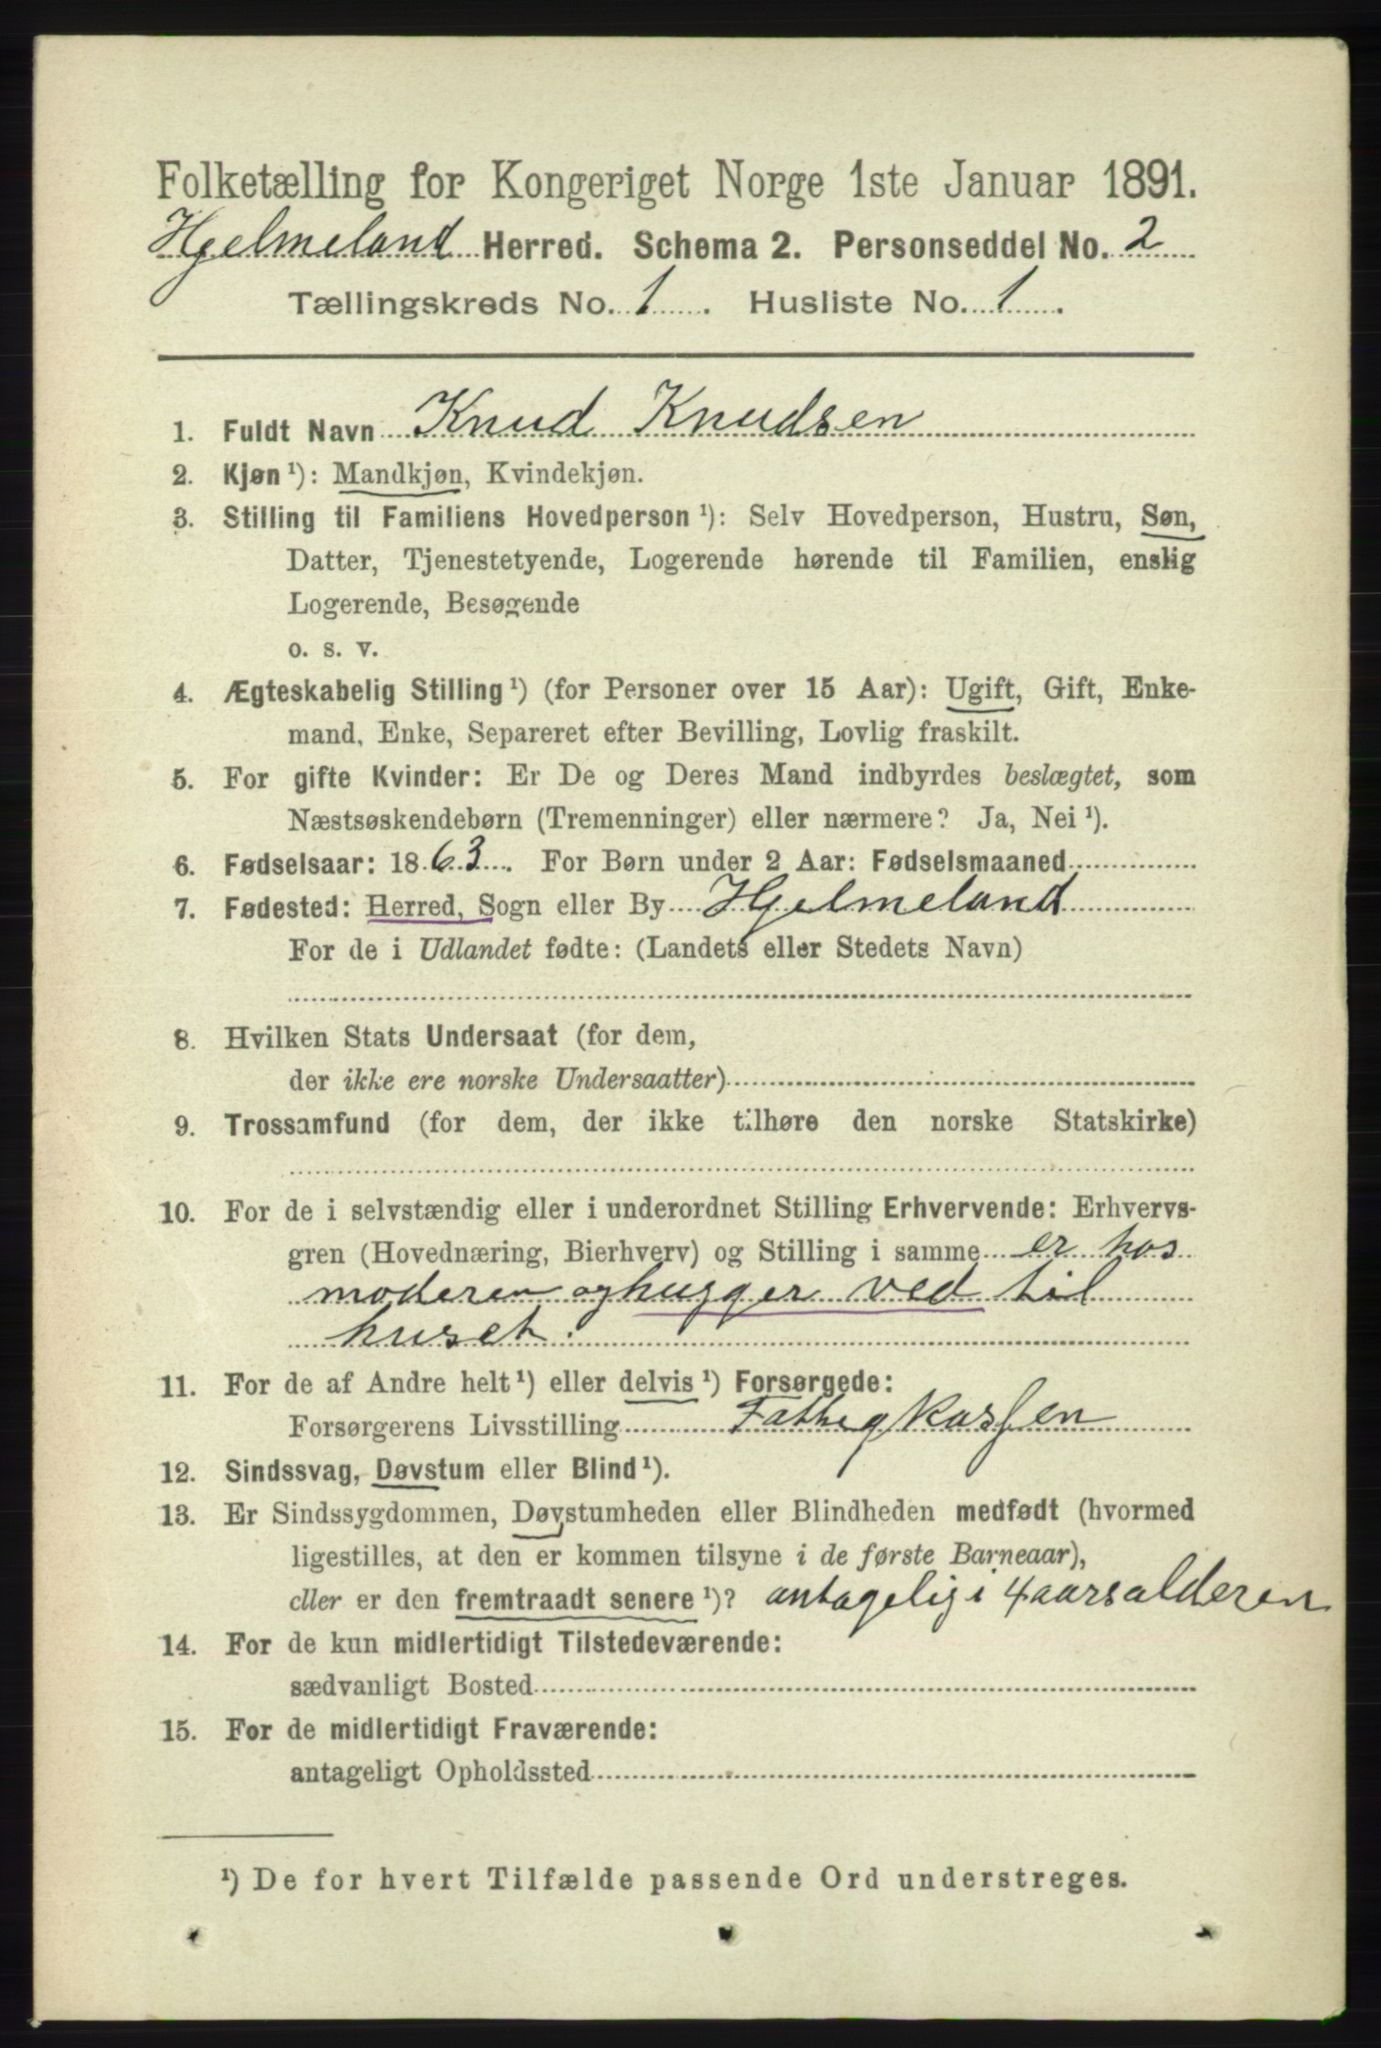 Folketælling for Kongeriget Norge 1ste Januar 1891.
Hjelmeland Herred. Schema 2. Personseddel No. 2
Tællingskreds No. 1. Husliste No. 1.
1. Fuldt Navn Knud Knudsen
2. Kjøn¹): Mandkjøn, Kvindekjøn.
3. Stilling til Familiens Hovedperson¹): Selv Hovedperson, Hustru, Søn,
Datter, Tjenestetyende, Logerende hørende til Familien, enslig
Logerende, Besøgende
o. s. v.
4. Ægteskabelig Stilling¹) (for Personer over 15 Aar): Ugift, Gift, Enke-
mand, Enke, Separeret efter Bevilling, Lovlig fraskilt.
5. For gifte Kvinder: Er De og Deres Mand indbyrdes beslægtet, som
Næstsøskendebørn (Tremenninger) eller nærmere? Ja, Nei¹).
6. Fødselsaar: 1863. For Børn under 2 Aar: Fødselsmaaned
7. Fødested: Herred, Sogn eller By Hjelmeland
For de i Udlandet fødte: (Landets eller Stedets Navn)
8. Hvilken Stats Undersaat (for dem,
der ikke ere norske Undersaatter)
9. Trossamfund (for dem, der ikke tilhøre den norske Statskirke)
10. For de i selvstændig eller i underordnet Stilling Erhvervende: Erhvervs-
gren (Hovednæring, Bierhverv) og Stilling i samme er hos
moderen og hugger ved til
huset.
11. For de af Andre helt¹) eller delvis¹) Forsørgede:
Forsørgerens Livsstilling Fattigkassen
12. Sindssvag, Døvstum eller Blind¹).
13. Er Sindssygdommen, Døvstumheden eller Blindheden medfødt (hvormed
ligestilles, at den er kommen tilsyne i de første Barneaar),
eller er den fremtraadt senere¹)? antagelig i 4 aarsalderen
14. For de kun midlertidigt Tilstedeværende:
sædvanligt Bosted
15. For de midlertidigt Fraværende:
antageligt Opholdssted
¹) De for hvert Tilfælde passende Ord understreges.